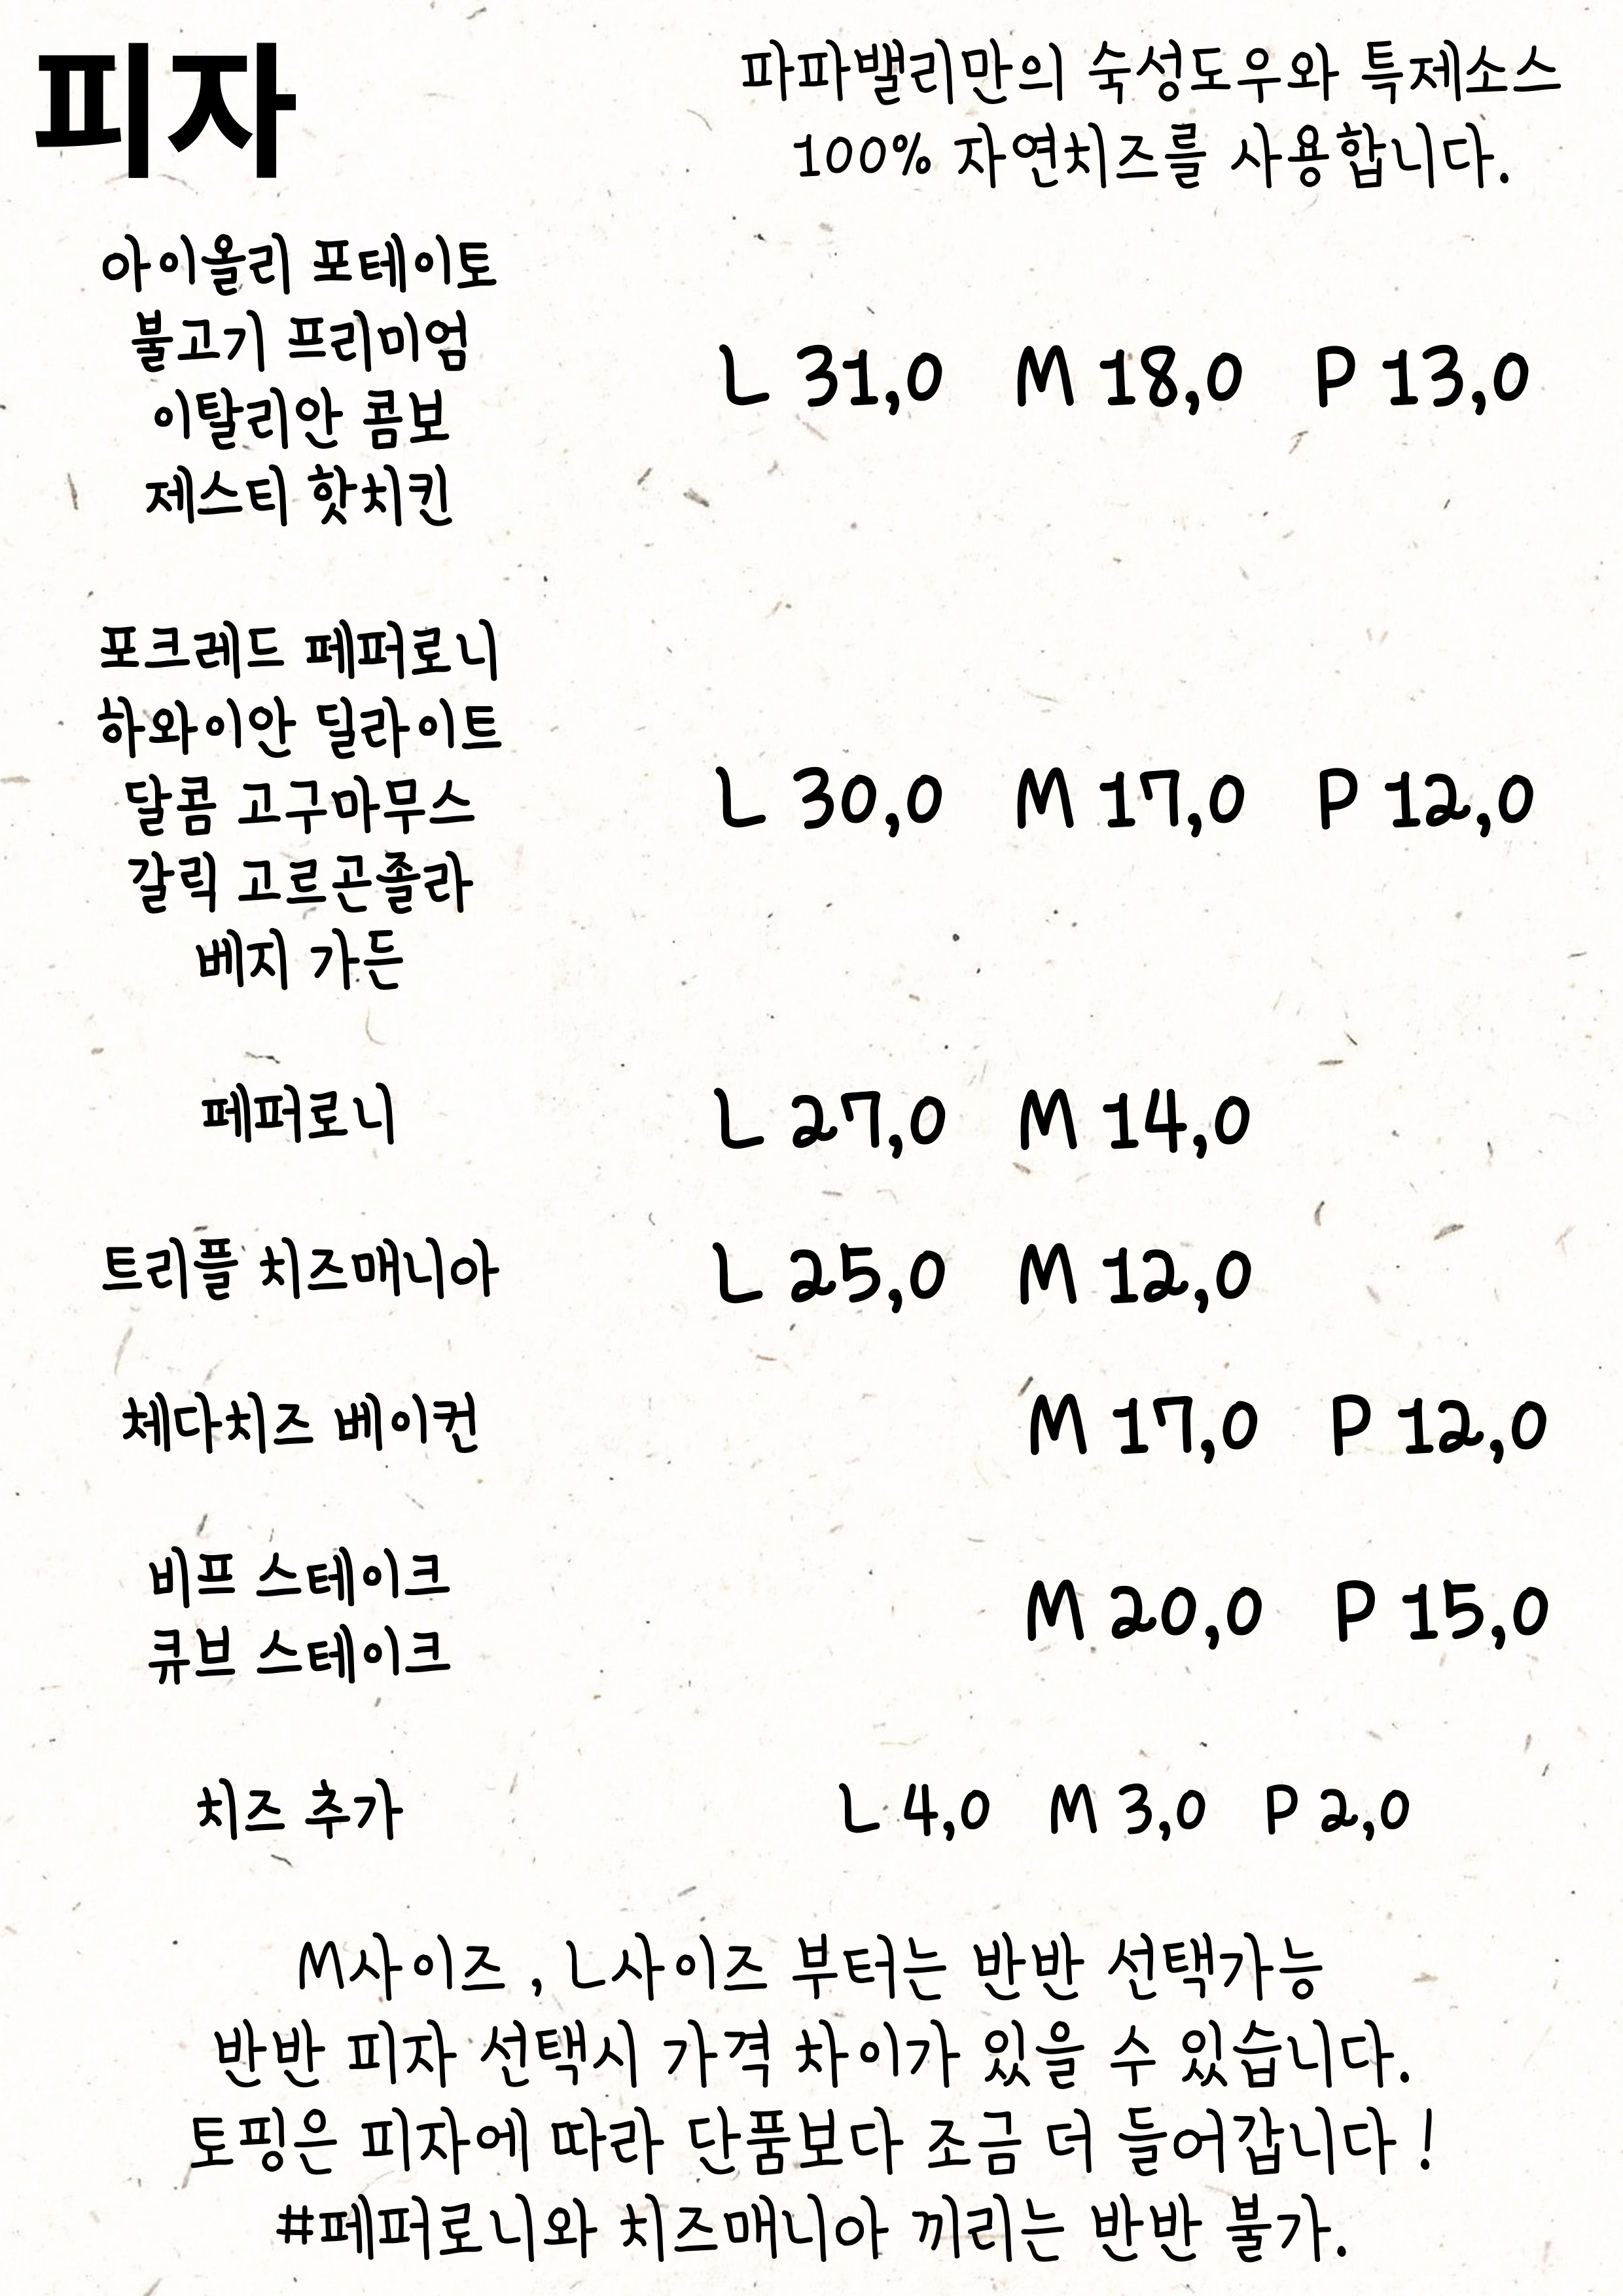 피자
파파밸리만의 숙성도우와 특제소스
100% 자연치즈를 사용합니다.
아이올리 포테이토
불고기 프리미엄
이탈리안 콤보
제스티 핫치킨
L 31,0 M 18,0 P 13,0
포크레드 페퍼로니
하와이안 딜라이트
달콤 고구마무스
갈릭 고르곤졸라
베지 가든
L 30,0 M 17,0 P 12,0
페퍼로니 L 27,0 M 14,0
트리플 치즈매니아 L 25,0 M 12,0
체다치즈 베이컨 M 17,0 P 12,0
비프 스테이크
큐브 스테이크
M 20,0 P 15,0
치즈 추가 L 4,0 M 3,0 P 2,0
M사이즈 , L사이즈 부터는 반반 선택가능
반반 피자 선택시 가격 차이가 있을 수 있습니다.
토핑은 피자에 따라 단품보다 조금 더 들어갑니다 !
#페퍼로니와 치즈매니아 끼리는 반반 불가.